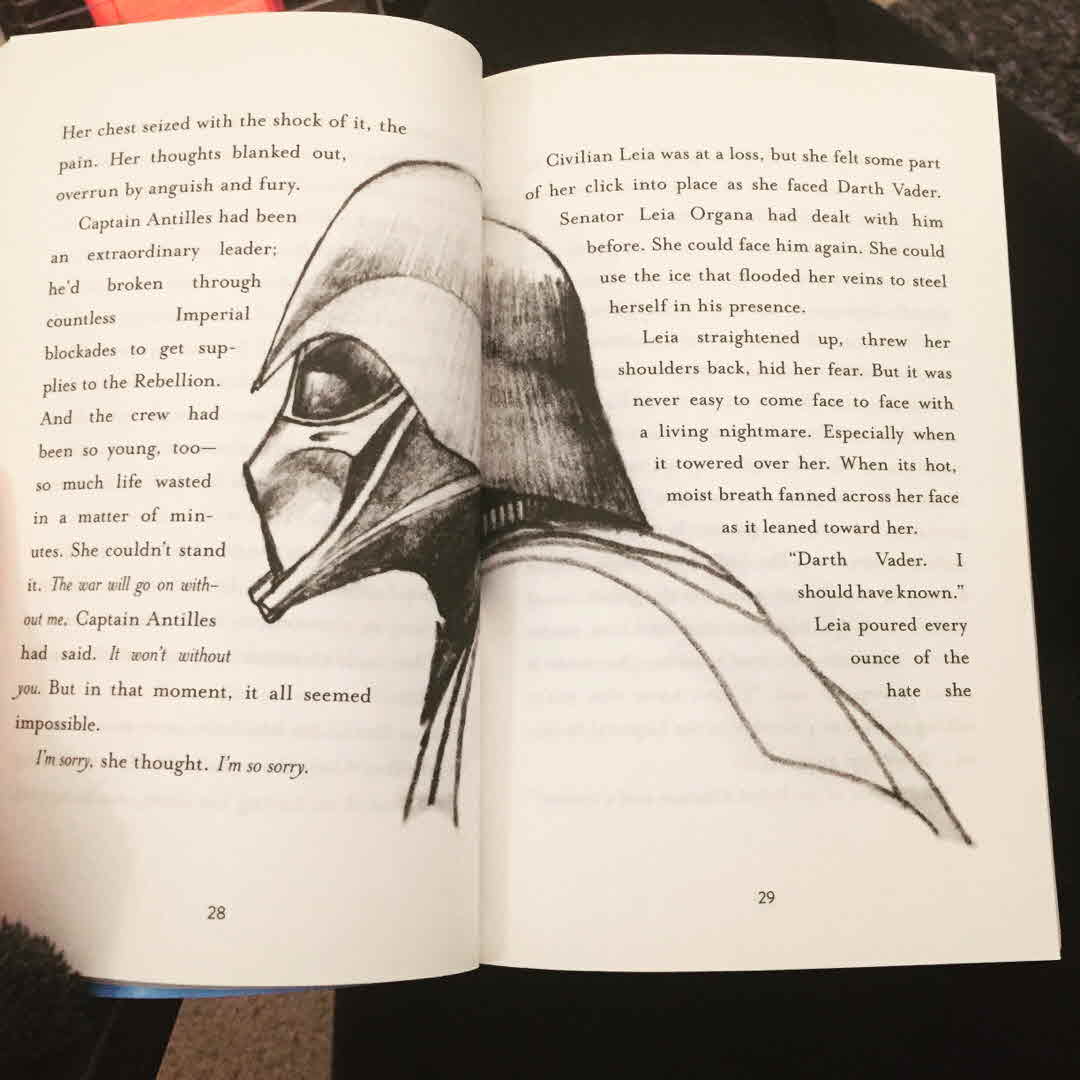 Her chest seized with the shock of it, the
pain. Her thoughts blanked out,
overrun by anguish and fury.
Captain Antilles had been
an extraordinary leader;
he'd broken through
countless Imperial
blockades to get sup-
plies to the Rebellion.
And the crew had
been so young, too—
so much life wasted
in a matter of min-
utes. She couldn't stand
it. The war will go on with-
out me, Captain Antilles
had said. It won't without
you. But in that moment, it all seemed
impossible.
I'm sorry, she thought. I'm so sorry.
28
Civilian Leia was at a loss, but she felt some part
of her click into place as she faced Darth Vader.
Senator Leia Organa had dealt with him
before. She could face him again. She could
use the ice that flooded her veins to steel
herself in his presence.
Leia straightened up, threw her
shoulders back, hid her fear. But it was
never easy to come face to face with
a living nightmare. Especially when
it towered over her. When its hot,
moist breath fanned across her face
as it leaned toward her.
"Darth Vader. I
should have known."
Leia poured every
ounce of the
hate she
29